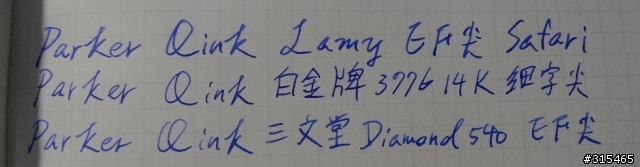 Parker Qink Lamy EF尖 Safari
Parker Qink 白金牌 3776 14K 細字尖
Parker Qink 三文堂 Diamond 540 EF尖
#315465